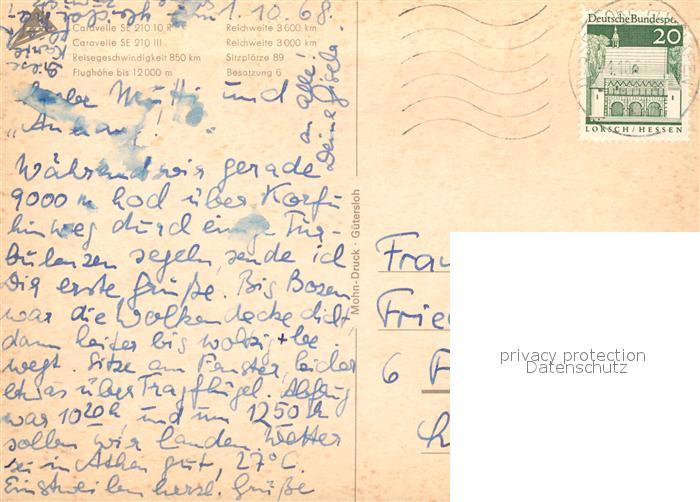 1.10.68.
Caravelle SE 210 10 R Reichweite 3 600 km
Caravelle SE 210 III Reichweite 3 000 km
Reisegeschwindigkeit 850 km Sitzplätze 89
Flughöhe bis 12 000 m Besatzung 6
Mutti und
"Anhang"!
Während wir gerade
9000 m hoch über Korfu
hinweg durch einige Tur-
bulenzen segeln, sende ich
Dir erste Grüße. Bis Bozen
war die Wolkendecke dicht,
dann heiter bis wolkig + be
wegt. Sitze am Fenster, leider
etwas über Tragflügel. Abflug
war 10 20 h, und um 12 50 h
sollen wir landen. Wetter
sei in Athen gut, 27°C.
Einstweilen herzl. Grüße
an alle!
Deine Gisela
Mohn-Druck · Gütersloh
Deutsche Bundespost
20
LORSCH/HESSEN
Frau
Fried
6 F
privacy protection
Datenschutz